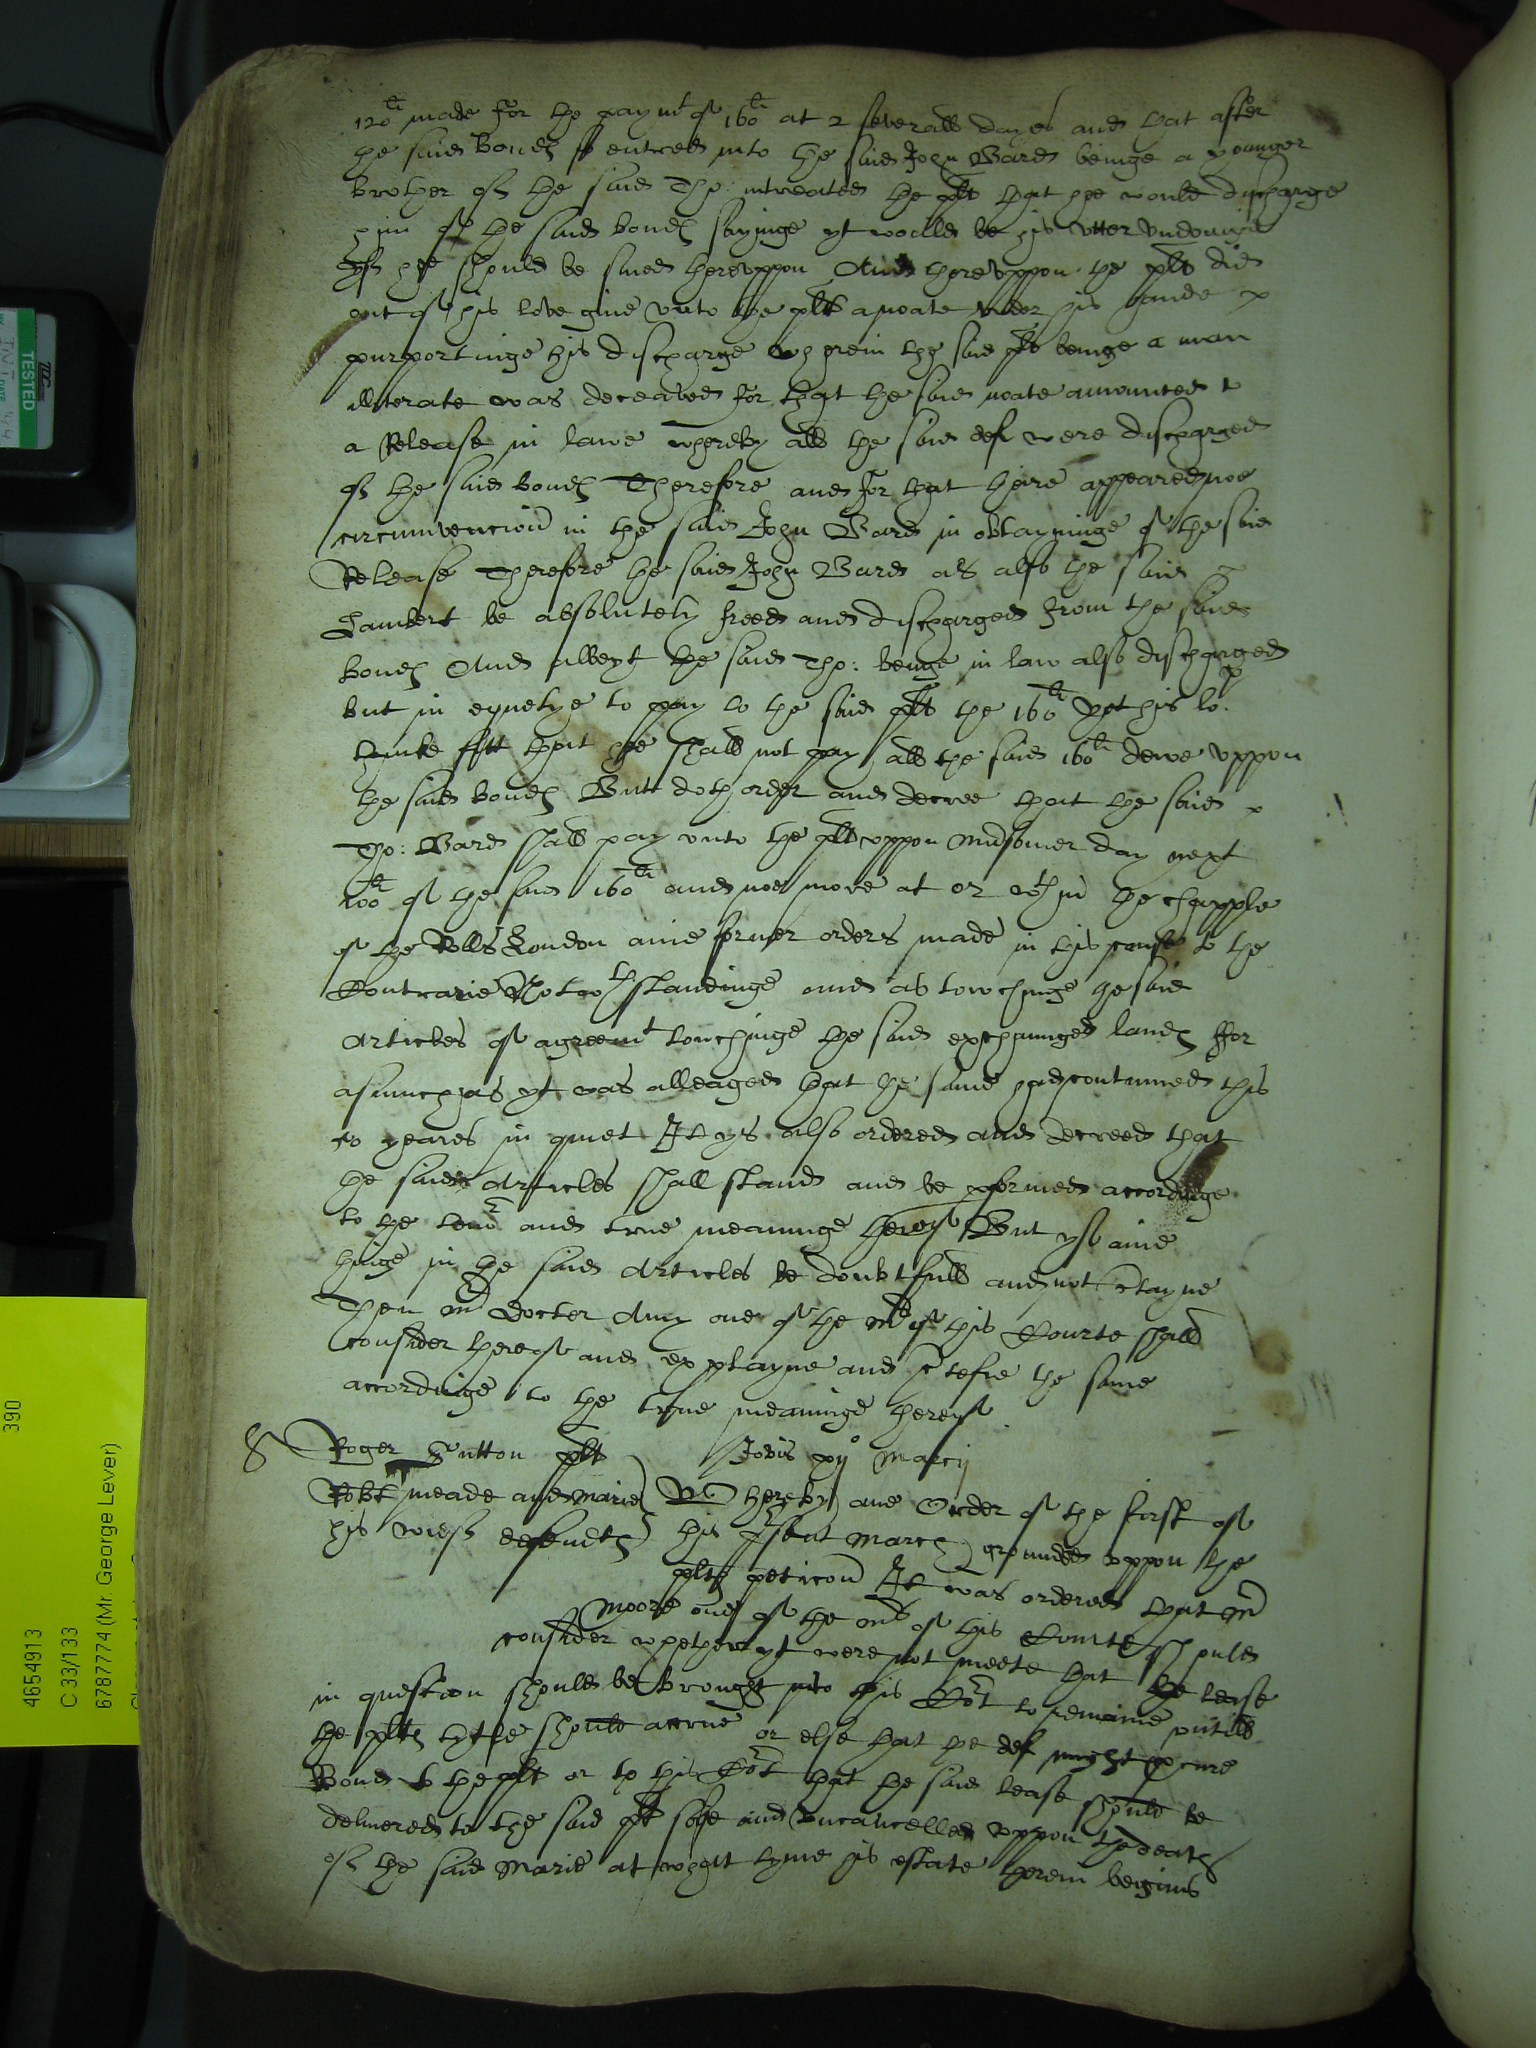 120li made for the paymt of 160li at 2 severall dayes and that after
the said bond so entred into the said John Ward beinge a younger
brother of the said Tho: intreated the plt that hee would discharge
him of the said bond sayinge yt would be his utter undoinge
yf hee should be sued thereuppon And thereuppon the plt did
out of his love give unto the plt a noate under his hande
purportinge his discharge wherein the said plt beinge a man
illiterate was deceaved for that the said noate amounted to
a Release in lawe whereby all the said def were discharged
of the said bond Therefore and for that there appeared noe
circumvencion in the said John Ward in obtayninge of the said
Release Therefore the said John Ward as also the said
Lambert be absolutely freed and discharged from the said
bond And albeyt the said Tho: beinge in law also discharged
but in equetye to pay to the said plt the 160li Yet his lo:
thinke fitt that he shall not pay all the said 160li dewe uppon
the said bond But doth order and decree that the said
Tho: Ward shall pay unto the plt uppon Midsomer day next
100li of the said 160li and noe more at or wthin the chapple
of the Rolls London anie former orders made in this cause to the
Contrarie Notwthstandinge and as towchinge the said
Articles of agreemt touchinge the said exchaunged land for
asmuch as yt was alleaged that the same had contynued this
yeares in quiet It ys also ordered and decreed that
the saide Articles shall stand and be pformed accordinge
to the tenor and true meaninge thereof But yf anie
thinge in the said Articles be doubtfull and not playne
Then Mr Docter Amy one of the Mrs of this Courte shall
consider thereof and explayne and certefie the same
accordinge to the true meaninge thereof
Roger Sutton plt
Jovis xijo Marcij
Robt meade and Marie
his wief defendtes
Whereby an Order of the first of
this psent March grounded uppon the
pltes peticon It was ordered that Mr
Moore one of the Mrs of this Courte should
consider whether yt were not meete that the lease
in question should be brought into this Cort to remaine untill
the pltes tytle should accrue or else that the def might procure
Bond to the plt or to this Cort that the said lease should be
delivered to the said plt safe and uncancelled uppon the death
of the said Marie at what tyme his estate therein begins
TESTED
390
4654913
C 33/133
6787774 (Mr. George Lever)